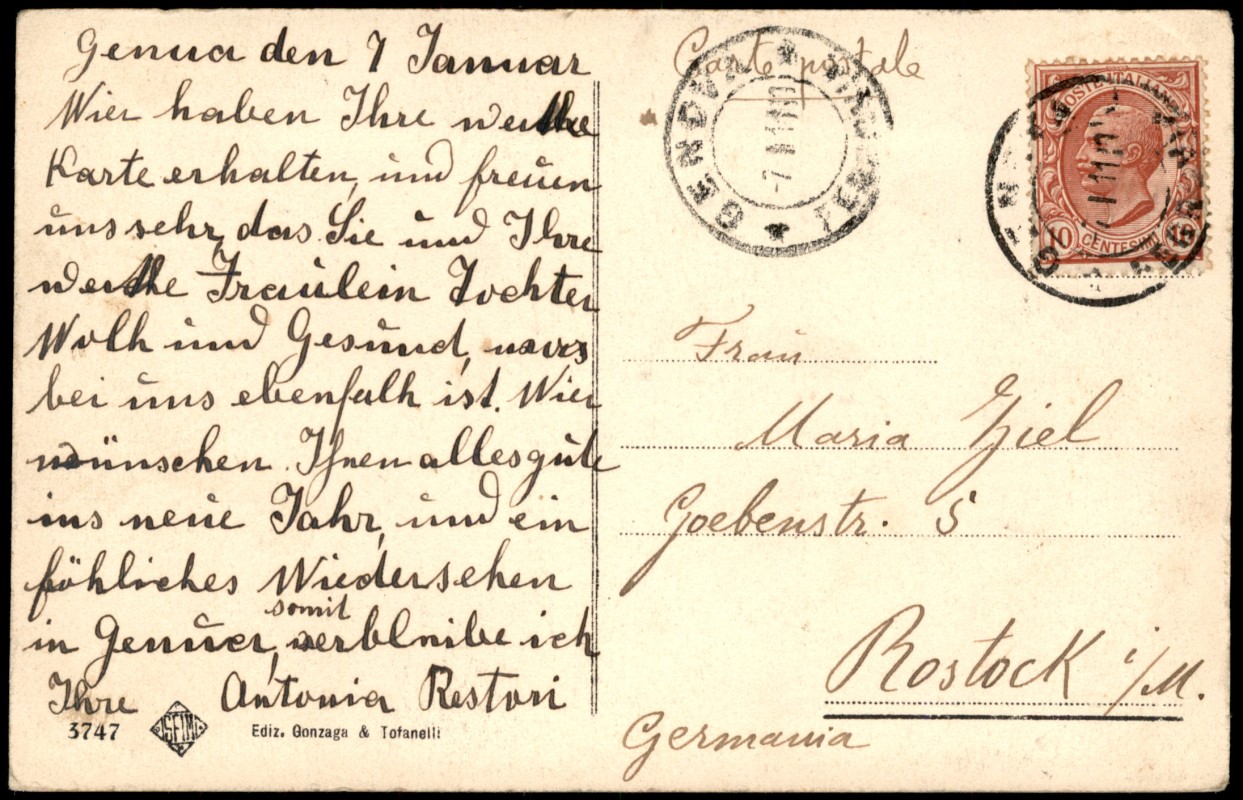 Genua den 7 Januar
Wier haben Ihre werthe
Karte erhalten, und freuen
uns sehr, das Sie und Ihre
werthe Fraülein Tochter
Wolh und Gesund,
bei uns ebenfalh ist. Wier
wünschen Ihnen alles gute
ins neue Jahr, und ein
föhliches Wiedersehen
somit
in Genua, ich
Ihre Antonia Restori
3747
Ediz. Gonzaga & Tofanelli
Carte postale
GENOVA
7.1.11
POSTE ITALIANE
10 CENTESIMI 10
Frau
Maria Ziel
Goebenstr. 5
Rostock i/M.
Germania